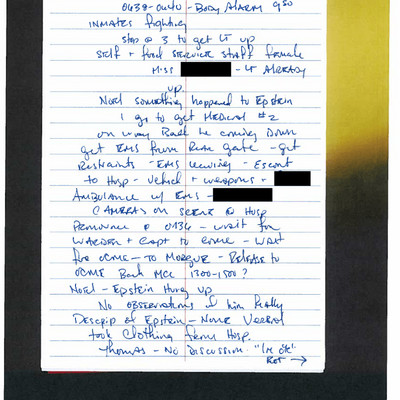 0638-0640 - Body Alarm 950
INMATES fighting
stop @ 3 to get LT up
Self + food SERVICE STAFF female
Miss - LT Already
up.
Noel something happened to Epstein
I go to get MEDICAL #2
on way Back he coming Down
get EMS from Rear gate - get
Restraints - EMS - Escort
to Hosp - Vehicle + weapons +
Ambulance w/ EMS -
CAMERAS on scene @ Hosp
Pronounce @ - wait for
WARDEN + Capt to come - WAIT
for OCME - To Morgue - Release to
OCME Back MCC 1300-1500?
Noel - Epstein Hung up
No observations of him Really
Descrip of Epstein - None Verbal
took Clothing from Hosp.
Thomas - No Discussion. "I'm ok"
→